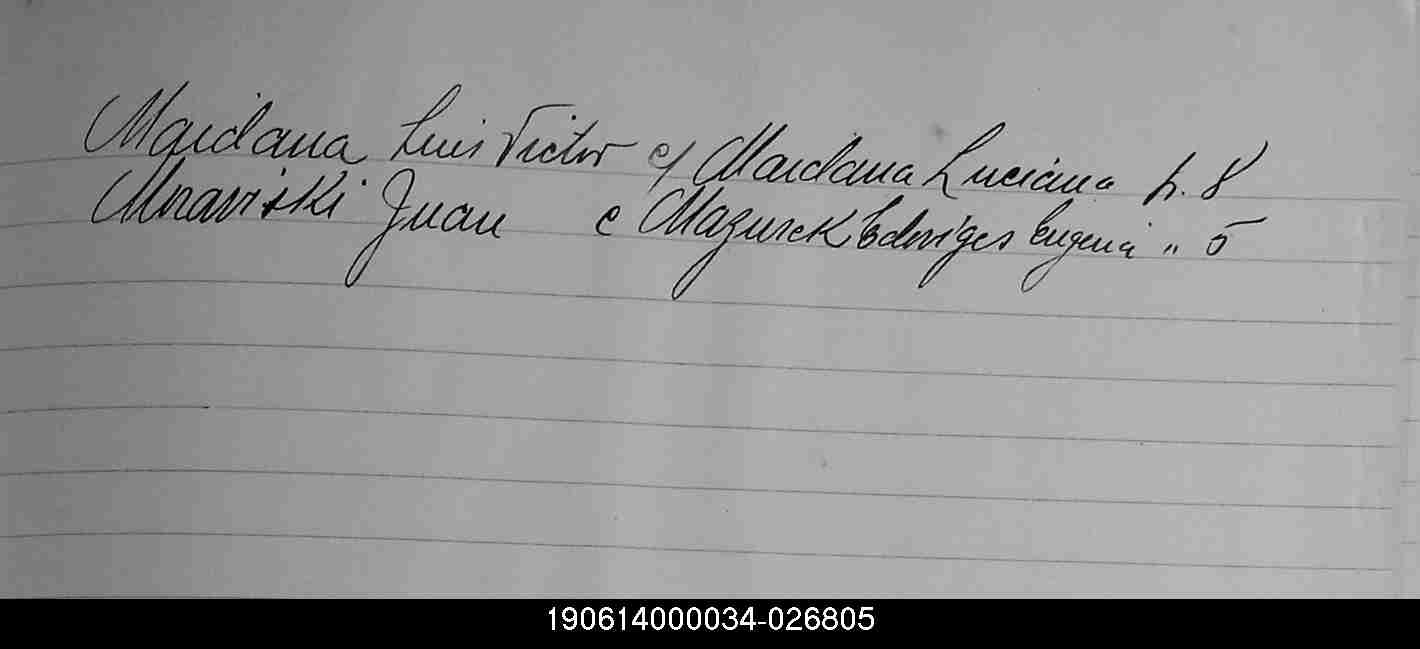 Maidana Luis Victor c/ Maidana Luciana p. 8
Moraviski Juan c Mazurek Edviges Eugenia " 5
190614000034-026805